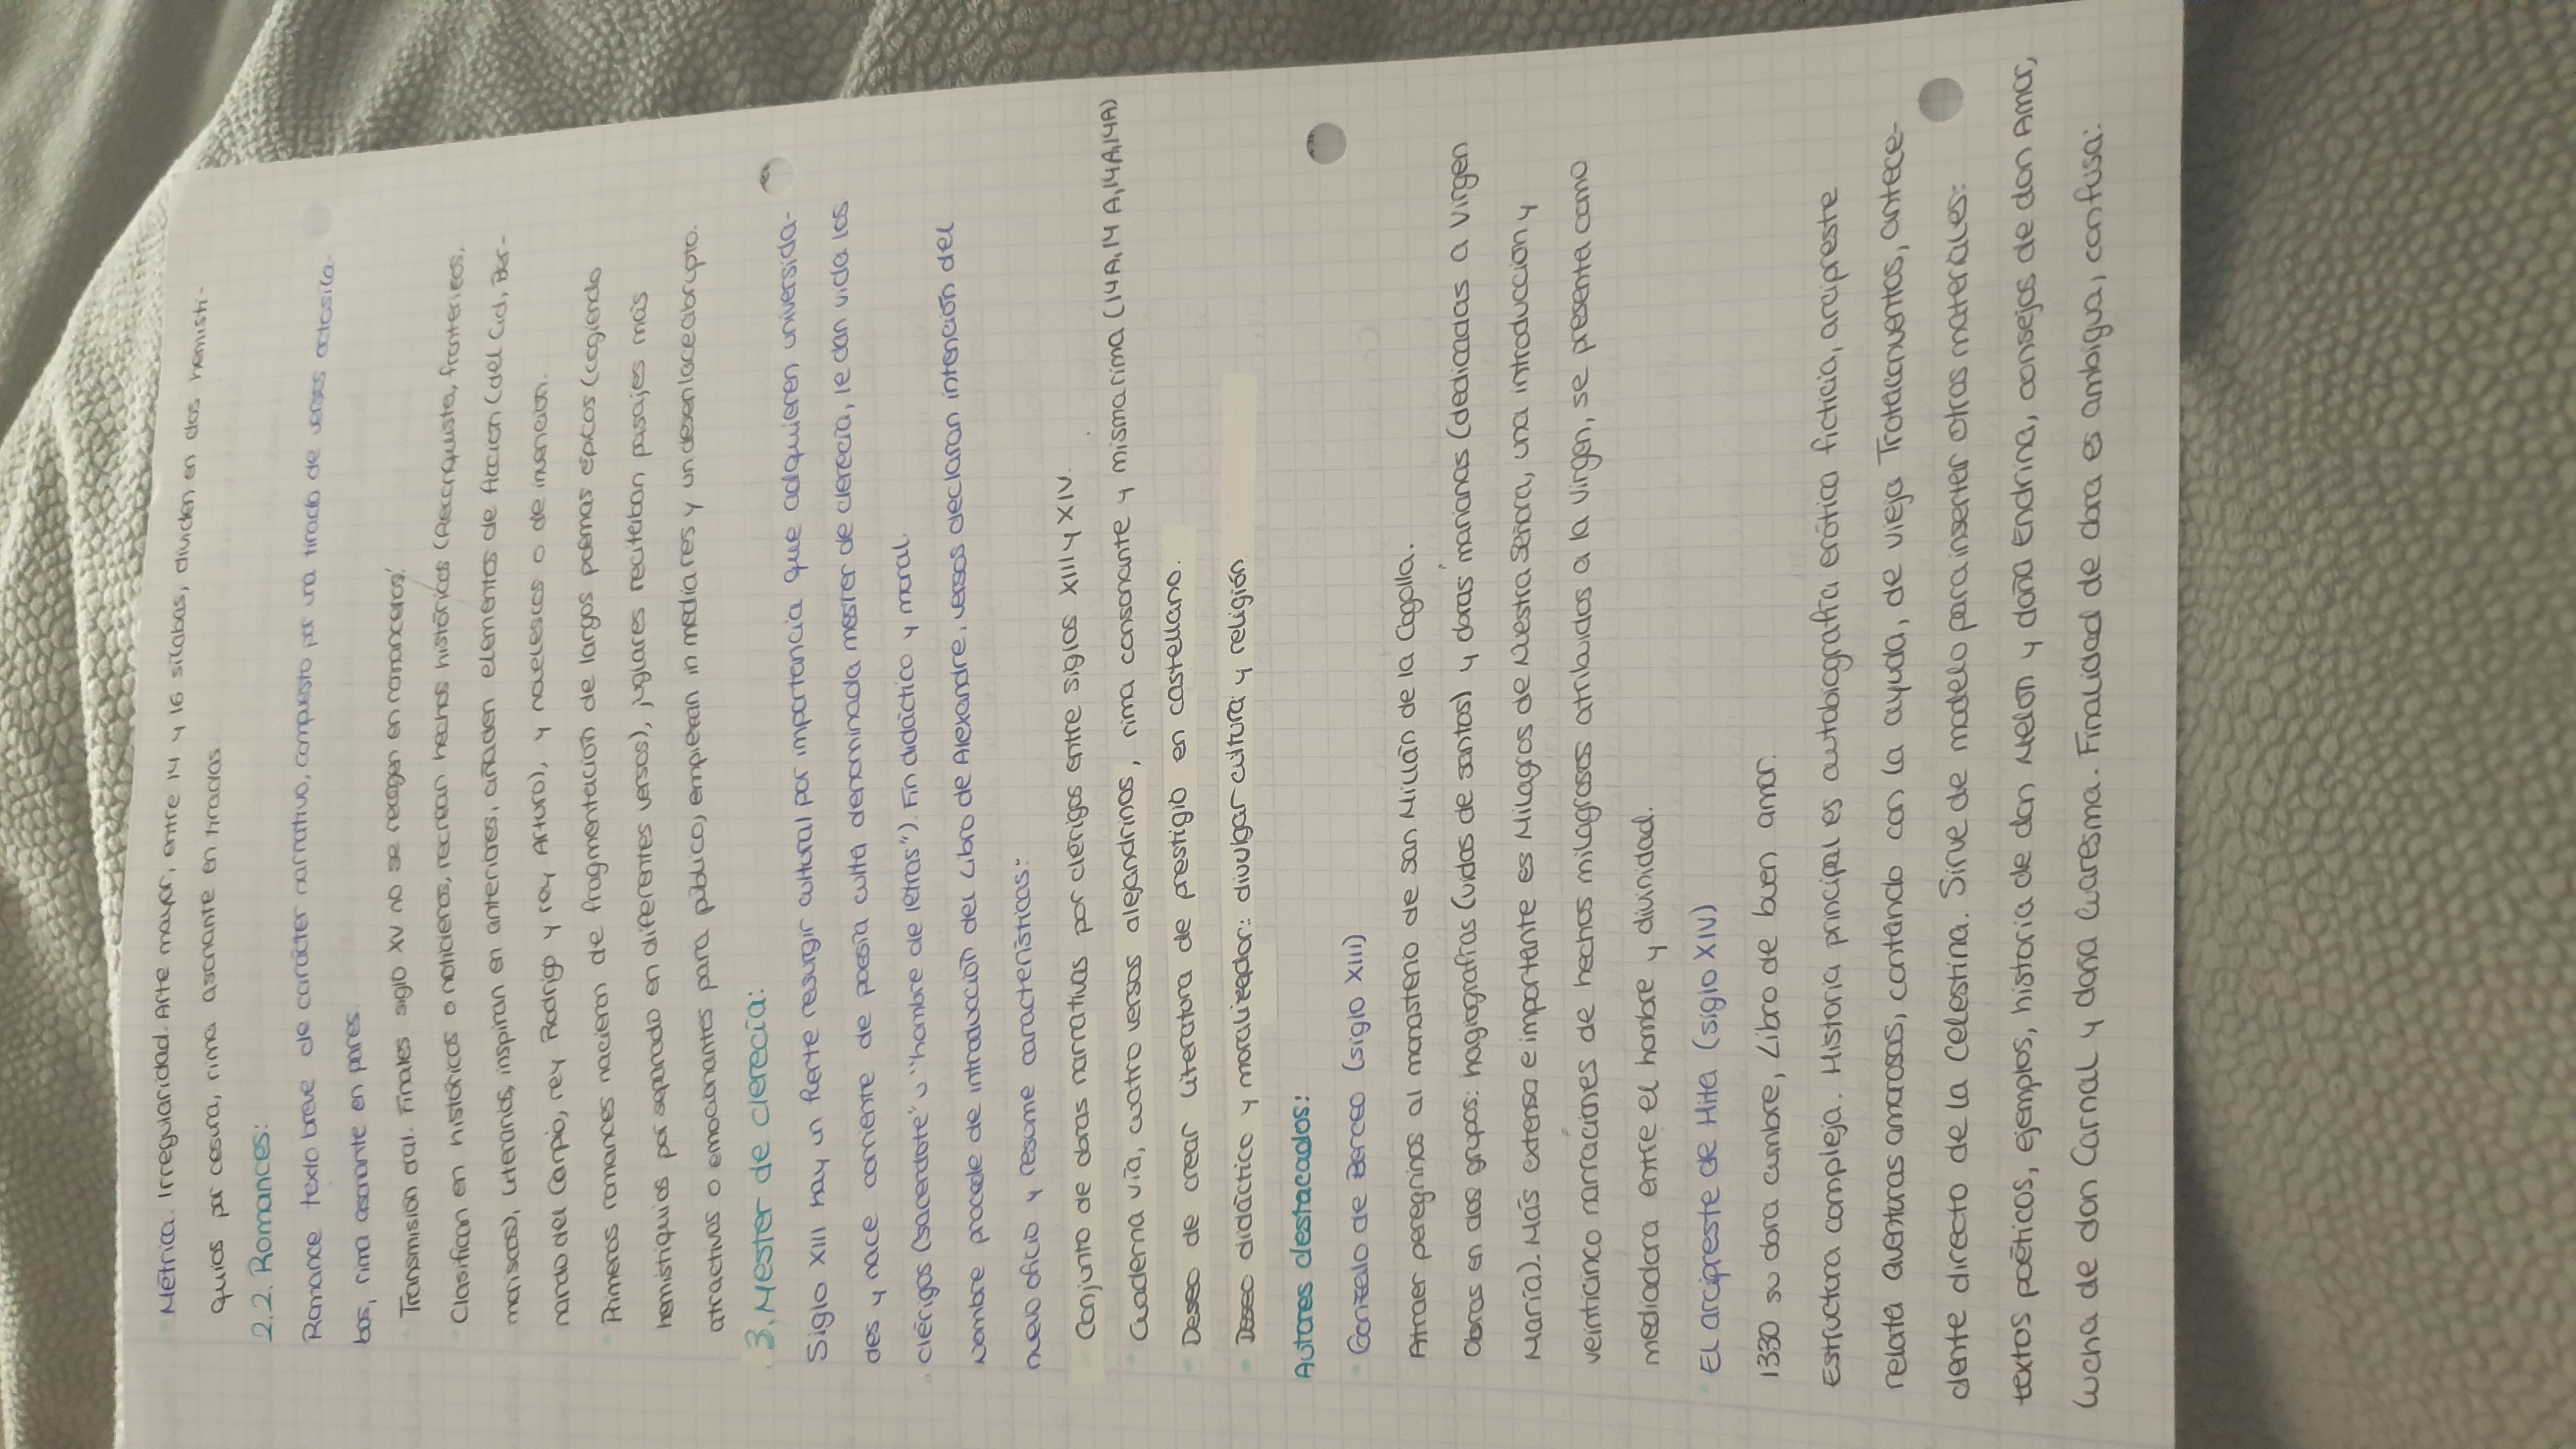 Métrica. Irregularidad. Arte mayor, entre 14 y 16 sílabas, dividen en dos hemisti-
quios por cesura, rima asonante en tiradas.
2.2. Romances:
Romance texto breve de carácter narrativo, compuesto por una tirada de versos octosíla-
bos, rima asonante en pares.
Transmisión oral. Finales siglo XV no se recogen en romanceros.
Clasifican en históricos o noticieros, recrean hechos históricos (Reconquista, fronterizos,
moriscos), literarios, inspiran en anteriores, añaden elementos de ficcion (del Cid, Ber-
nardo del Carpio, rey Rodrigo y rey Arturo), y novelescos o de invención.
Primeros romances nacieron de fragmentación de largos poemas épicos (cogiendo
hemistiquios por separado en diferentes versos), juglares recitaban pasajes más
atractivos o emocionantes para público, empiezan in media res y un desenlace abrupto.
3. Mester de clerecía:
Siglo XIII hay un fuerte resurgir cultural por importancia que adquieren universida-
des y nace corriente de poesía culta denominada mester de clerecía, le dan vida los
clérigos (sacerdote" u "hombre de letras"). Fin didáctico y moral.
Nombre procede de introducción del Libro de Alexandre, versos declaran intención del
nuevo oficio y resume características:
Conjunto de obras narrativas por clérigos entre siglos XIII y XIV.
Cuaderna vía, cuatro versos alejandrinos, rima consonante y misma rima (14A,14 A,14A,14A)
Deseo de crear literatura de prestigio en castellano.
Deseo didáctico y moralizador: divulgar cultura y religión
Autores destacados:
Gonzalo de Berceo (siglo XIII)
Atraer peregrinos al monasterio de san Millán de la Cogolla.
Obras en dos grupos: hagiografías (vidas de santos) y obras marianas (dedicadas a Virgen
María). Más extensa e importante es Milagros de Nuestra Señora, una introducción y
veinticinco narraciones de hechos milagrosos atribuidos a la Virgen, se presenta como
mediadora entre el hombre y divinidad.
El arcipreste de Hita (siglo XIV)
1330 su obra cumbre, Libro de buen amor.
Estructura compleja. Historia principal es autobiografía erótica ficticia, arcipreste
relata aventuras amorosas, contando con la ayuda, de vieja Trotaconventos, antece-
dente directo de la Celestina. Sirve de modelo para insertar otros materiales:
textos poéticos, ejemplos, historia de don Melon y doña Endrina, consejos de don Amor,
lucha de don Carnal y doña Cuaresma. Finalidad de obra es ambigua, confusa: